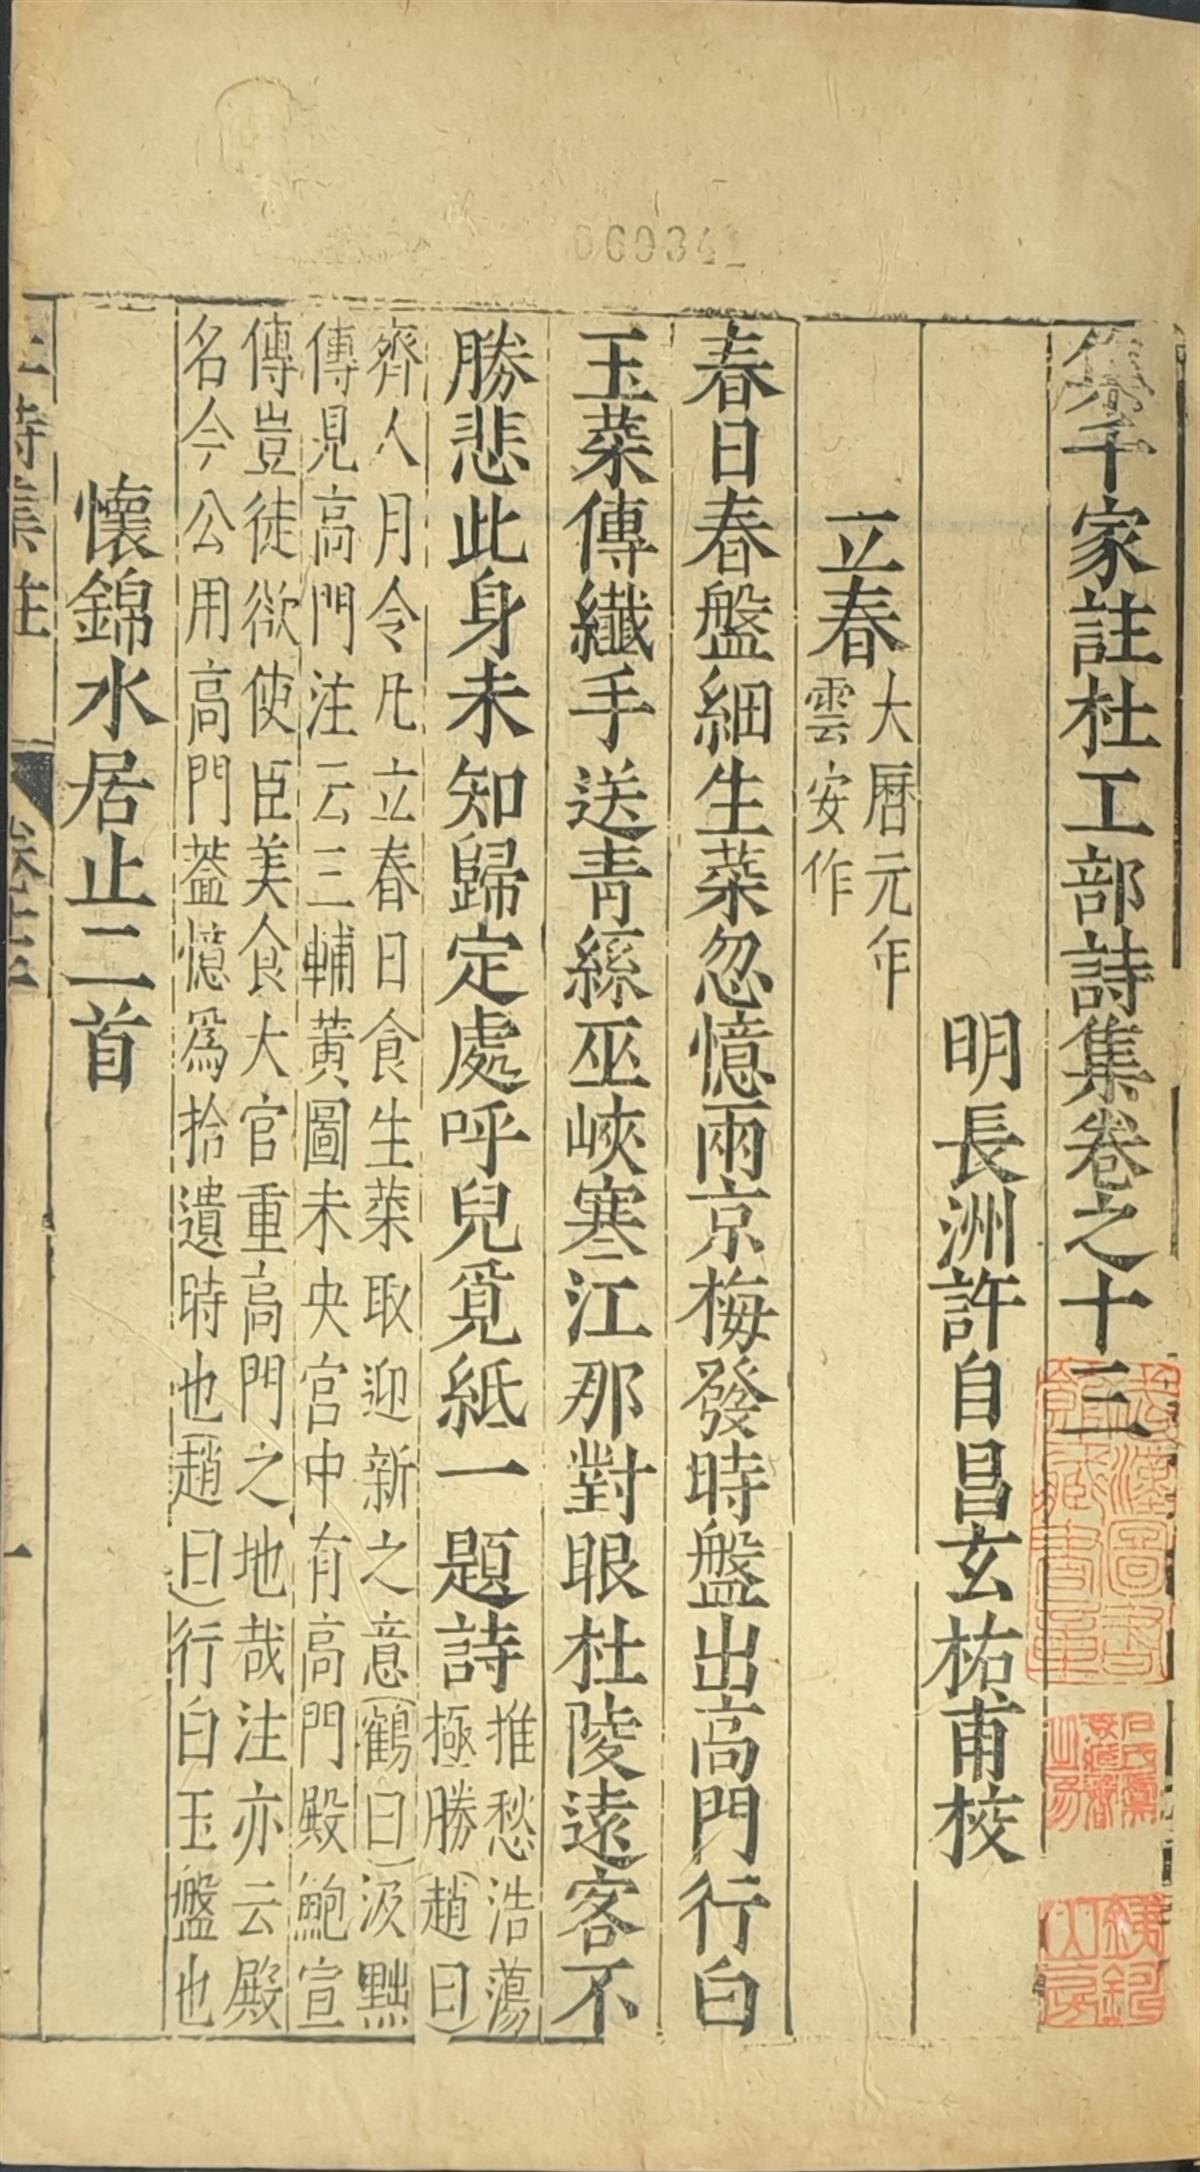 集千家註杜工部詩集卷之十三
明長洲許自昌玄祐甫校
立春大曆元年
雲安作
春日春盤細生菜忽憶兩京梅發時盤出高門行白
玉菜傳纖手送青絲巫峽寒江那對眼杜陵遠客不
勝悲此身未知歸定處呼兒覓紙一題詩推愁浩蕩
極勝趙曰
齊人月令凡立春日食生菜取迎新之意鶴曰汲黯
傳見高門注云三輔黃圖未央宮中有高門殿鮑宣
傳豈徒欲使臣美食大官重高門之地哉注亦云殿
名今公用高門蓋憶為拾遺時也趙曰行白玉盤也
懷錦水居止二首
杜詩集註
卷十三
一
060341